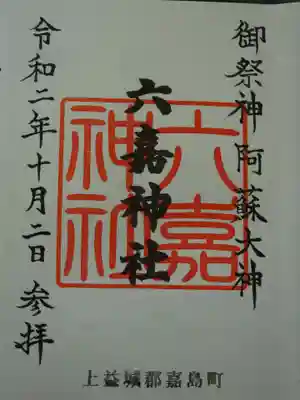 御祭神阿蘇大神
六嘉神社
六嘉神社
令和二年十月二日参拝
上益城郡嘉島町